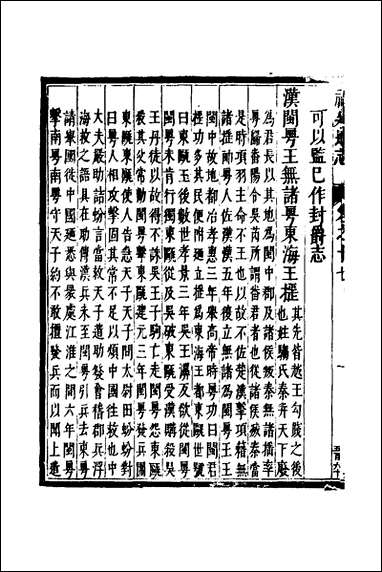 福建通志
可以監已作封爵志
漢閩粵王無諸粵東海王搖 其先皆越王勾踐之後
也姓騶氏秦并天下廢
為君長以其地為閩中郡及諸侯叛秦無諸搖率
粵歸番陽令吳芮所謂番君者也從諸侯滅秦當
是時項羽主命不王也以故不佐楚漢擊項籍無
諸搖帥粵人佐漢漢五年復立無諸為閩粵王王
閩中故地都冶孝惠三年舉高帝時粵功曰閩君
搖功多其民便附廼立搖為東海王都東甌世號
曰東甌王後數世孝景三年吳王濞反欲從閩粵
閩粵未肯行獨東甌從及吳破東甌受漢購殺吳
王丹徒以故得不誅吳王子駒亡走閩粵怨東甌
殺其父常勸閩粵擊東甌建元三年閩粵發兵圍
東甌東甌使人告急天子天子問太尉田蚡蚡對
曰粵人相攻擊固其常不足以煩中國往救也中
大夫嚴助詰蚡言當救天子遣助發會稽郡兵浮
海救之語具在助傳漢兵未至閩粵引兵去東粵
請舉國徙中國廼悉與衆處江淮之間六年閩粵
擊南粵南粵守天子約不敢擅發兵而以聞上遣